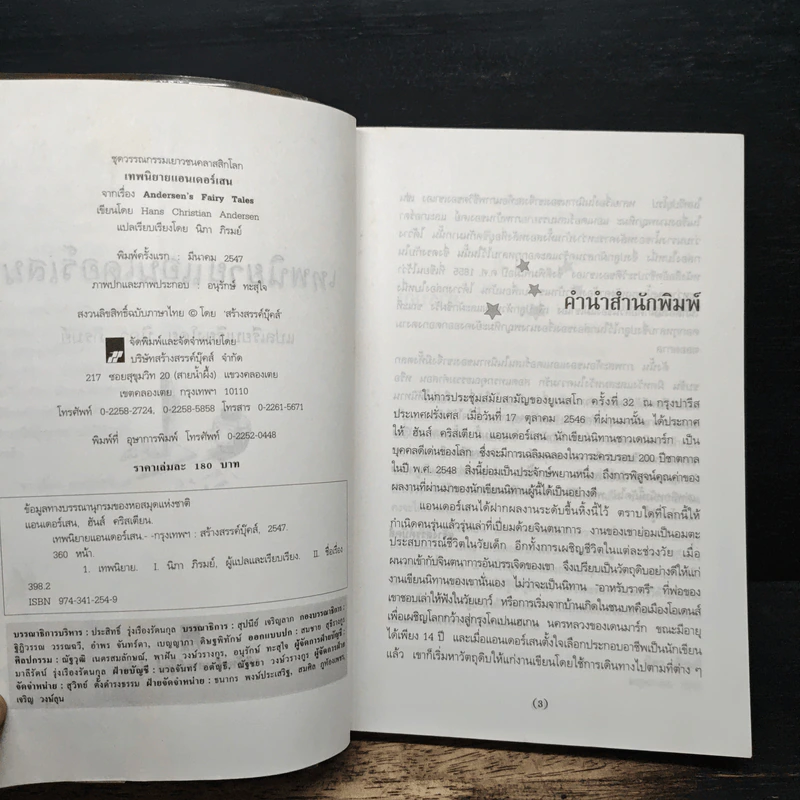 ชุดวรรณกรรมเยาวชนคลาสสิกโลก
เทพนิยายแอนเดอร์เสน
จากเรื่อง Andersen's Fairy Tales
เขียนโดย Hans Christian Andersen
แปลเรียบเรียงโดย นิภา ภิรมย์
พิมพ์ครั้งแรก : มีนาคม 2547
ภาพปกและภาพประกอบ : อนุรักษ์ ทะสุใจ
สงวนลิขสิทธิ์ฉบับภาษาไทย © โดย 'สร้างสรรค์บุ๊คส์'
จัดพิมพ์และจัดจำหน่ายโดย
บริษัทสร้างสรรค์บุ๊คส์ จำกัด
217 ซอยสุขุมวิท 20 (สายน้ำผึ้ง) แขวงคลองเตย
เขตคลองเตย กรุงเทพฯ 10110
โทรศัพท์ 0-2258-2724, 0-2258-5858 โทรสาร 0-2261-5671
พิมพ์ที่ อุษาการพิมพ์ โทรศัพท์ 0-2252-0448
ราคาเล่มละ 180 บาท
ข้อมูลทางบรรณานุกรมของหอสมุดแห่งชาติ
แอนเดอร์เสน, ฮันส์ คริสเตียน.
เทพนิยายแอนเดอร์เสน.- -กรุงเทพฯ : สร้างสรรค์บุ๊คส์, 2547.
360 หน้า.
1. เทพนิยาย. I. นิภา ภิรมย์, ผู้แปลและเรียบเรียง. II. ชื่อเรื่อง
398.2
ISBN 974-341-254-9
บรรณาธิการบริหาร : ประสิทธิ์ รุ่งเรืองรัตนกุล บรรณาธิการ : สุปนีย์ เจริญลาภ กองบรรณาธิการ :
ฐิฏิวรรณ วรรณฉวี, อำพร จันทร์ดา, เบญญาภา ดิษฐพิทักษ์ ออกแบบปก : สมชาย
ศิลปกรรม : ณัฐวุฒิ เนตรสมลักษณ์, พาฝัน วงษ์วรางกูร, อนุรักษ์ ทะสุใจ ผู้จัดการฝ่ายบัญชี :
มาลีรัตน์ รุ่งเรืองรัตนกุล ฝ่ายบัญชี : นวลจันทร์ ณัฐชยา วงษ์วรางกูร ผู้จัดการฝ่าย
จัดจำหน่าย : สุวิทย์ ตั้งดำรงธรรม ฝ่ายจัดจำหน่าย : ธนากร พงษ์ประเสริฐ, สมศิล
เจริญ วงษ์สูน
คำนำสำนักพิมพ์
ในการประชุมสมัยสามัญของยูเนสโก ครั้งที่ 32 ณ กรุงปารีส
ประเทศฝรั่งเศส เมื่อวันที่ 17 ตุลาคม 2546 ที่ผ่านมานั้น ได้ประกาศ
ให้ ฮันส์ คริสเตียน แอนเดอร์เสน นักเขียนนิทานชาวเดนมาร์ก เป็น
บุคคลดีเด่นของโลก ซึ่งจะมีการเฉลิมฉลองในวาระครบรอบ 200 ปีชาตกาล
ในปี พ.ศ. 2548 สิ่งนี้ย่อมเป็นประจักษ์พยานหนึ่ง ถึงการพิสูจน์คุณค่าของ
ผลงานที่ผ่านมาของนักเขียนนิทานผู้นี้ได้เป็นอย่างดี
แอนเดอร์เสนได้ฝากผลงานระดับขึ้นหิ้งนี้ไว้ ตราบใดที่โลกนี้ให้
กำเนิดคนรุ่นแล้วรุ่นเล่าที่เปี่ยมด้วยจินตนาการ งานของเขาย่อมเป็นอมตะ
ประสบการณ์ชีวิตในวัยเด็ก อีกทั้งการเผชิญชีวิตในแต่ละช่วงวัย เมื่อ
ผนวกเข้ากับจินตนาการอันบรรเจิดของเขา จึงเปรียบเป็นวัตถุดิบอย่างดีให้แก่
งานเขียนนิทานของเขานั่นเอง ไม่ว่าจะเป็นนิทาน "อาหรับราตรี" ที่พ่อของ
เขาชอบเล่าให้ฟังในวัยเยาว์ หรือการเริ่มจากบ้านเกิดในชนบทคือเมืองโอเดนส์
เพื่อเผชิญโลกกว้างสู่กรุงโคเปนเฮเกน นครหลวงของเดนมาร์ก ขณะมีอายุ
ได้เพียง 14 ปี และเมื่อแอนเดอร์เสนตั้งใจเลือกประกอบอาชีพเป็นนักเขียน
แล้ว เขาก็เริ่มหาวัตถุดิบให้แก่งานเขียนโดยใช้การเดินทางไปตามที่ต่าง ๆ
(3)